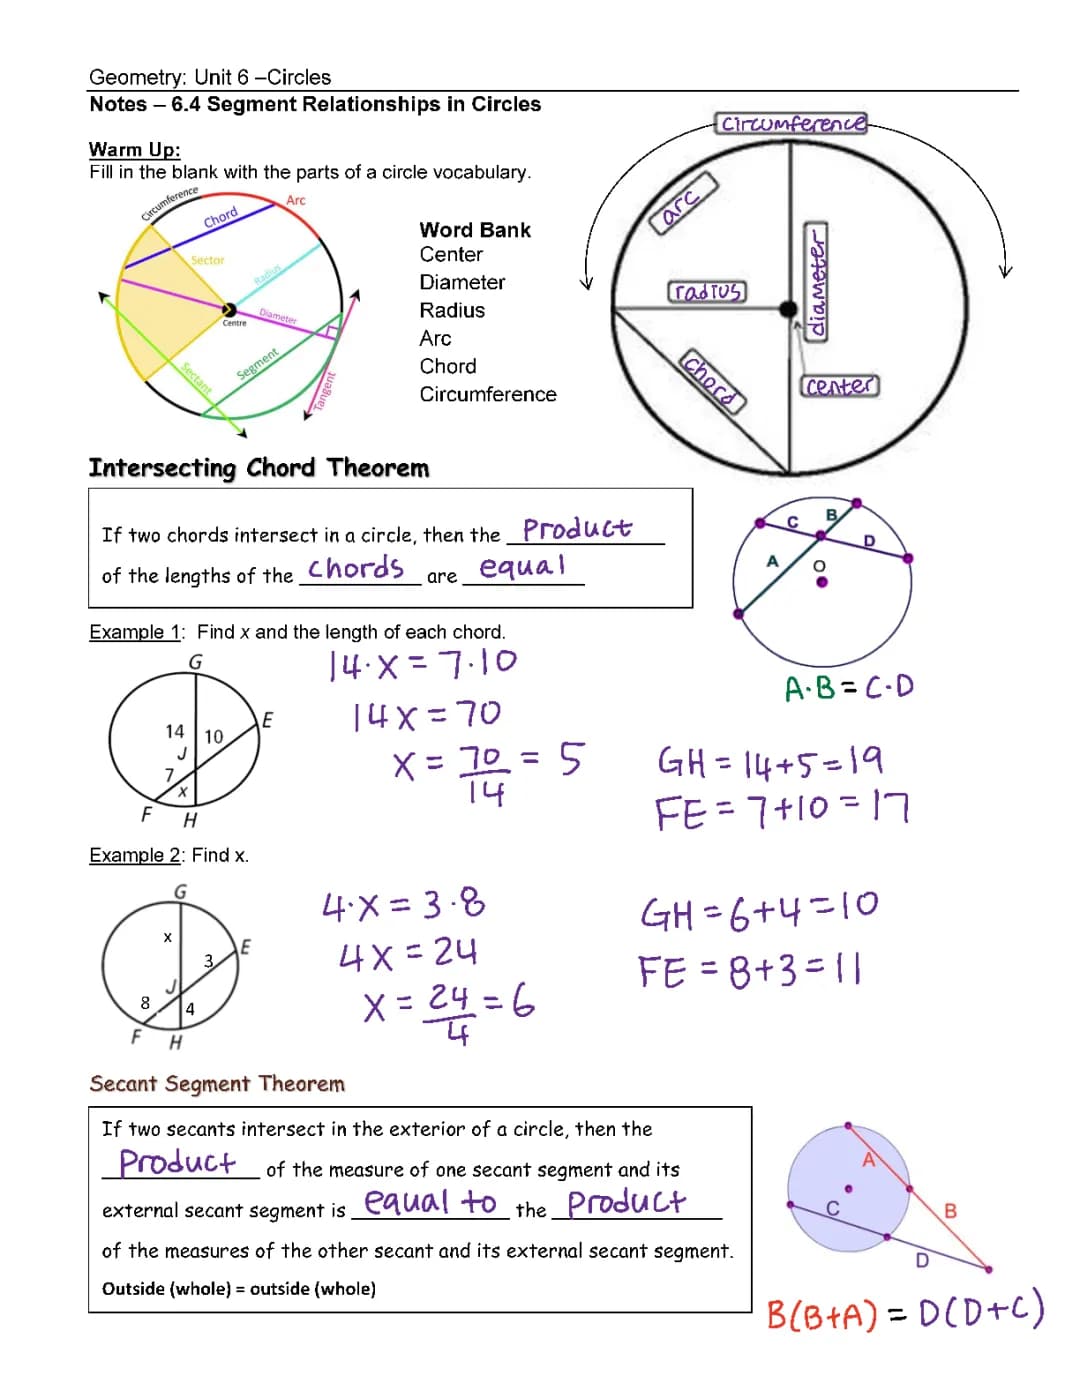 Geometry: Unit 6 –Circles
Notes – 6.4 Segment Relationships in Circles
Warm Up:
Fill in the blank with the parts of a circle vocabulary.
Circumference
Arc
Chord
Sector
Radius
Centre
Diameter
Segment
Sectant
Tangent
Word Bank
Center
Diameter
Radius
Arc
Chord
Circumference
circumference
arc
radius
diameter
chord
center
Intersecting Chord Theorem
If two chords intersect in a circle, then the Product
of the lengths of the chords are equal
C B
D
A
O
A·B = C·D
Example 1: Find x and the length of each chord.
G
E
14 10
J
7
x
F
H
14·x = 7·10
14x = 70
x = 70/14 = 5
GH = 14+5=19
FE = 7+10 = 17
Example 2: Find x.
G
x
E
3
J
8
4
F H
4·x = 3·8
4x = 24
x = 24/4 = 6
GH = 6+4=10
FE = 8+3=11
Secant Segment Theorem
If two secants intersect in the exterior of a circle, then the
Product of the measure of one secant segment and its
external secant segment is equal to the product
of the measures of the other secant and its external secant segment.
Outside (whole) = outside (whole)
A
C
B
D
B(B+A) = D(D+C)